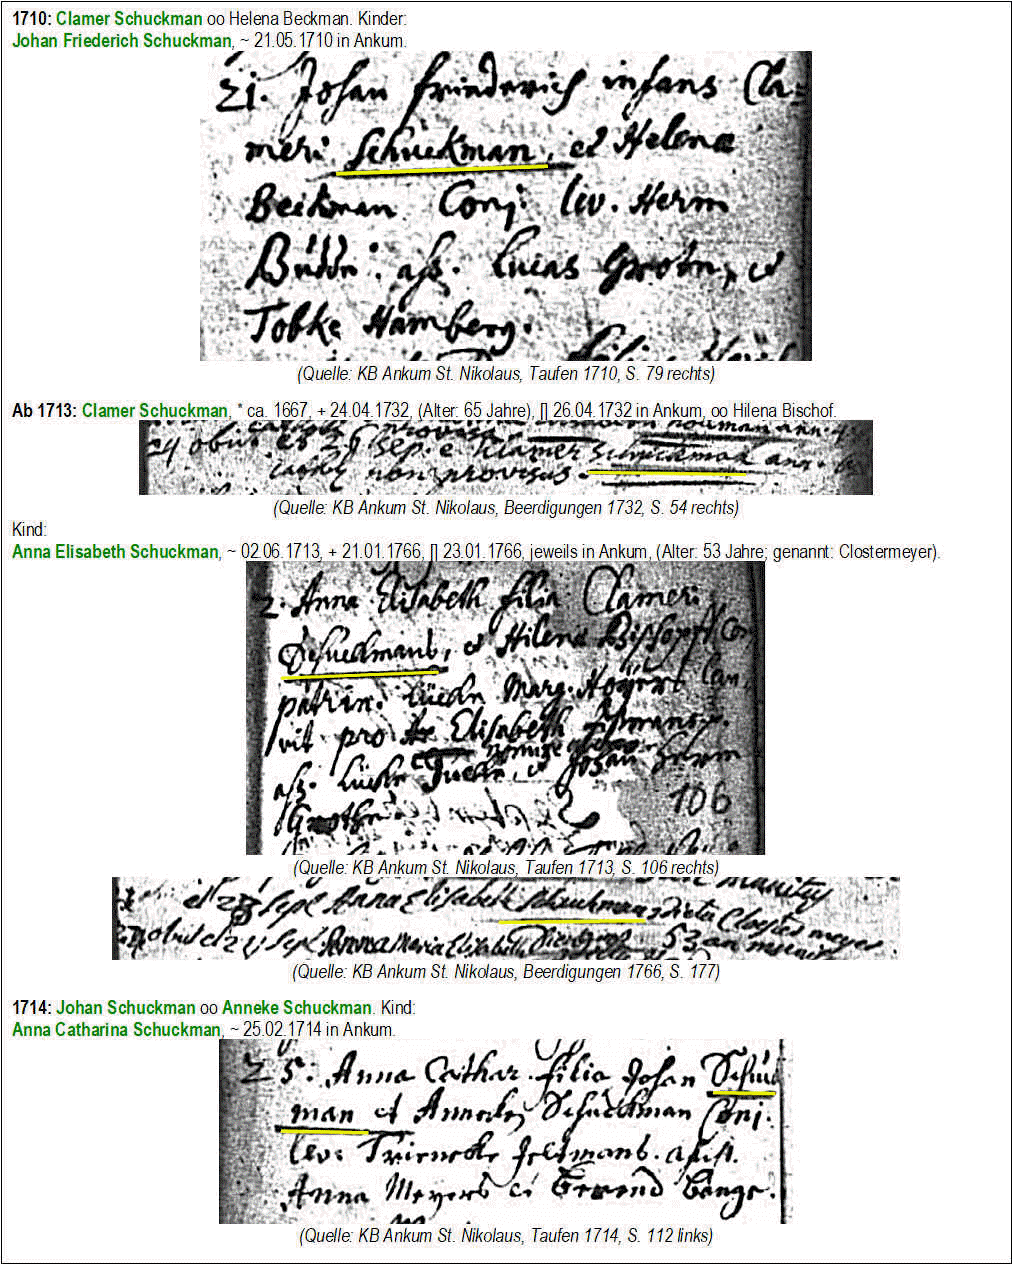 1710: Clamer Schuckman oo Helena Beckman. Kinder:
Johan Friederich Schuckman, ~ 21.05.1710 in Ankum.
21. Johan Friederich infans Cla-
meri Schuckman, et Helena
Beckman Conj. lev. Herm
Budde. ass. Lucas Grote, et
Tobke Hamberg.
(Quelle: KB Ankum St. Nikolaus, Taufen 1710, S. 79 rechts)
Ab 1713: Clamer Schuckman, * ca. 1667, + 24.04.1732, (Alter: 65 Jahre), [] 26.04.1732 in Ankum, oo Hilena Bischof.
24 obiit et 26 sep. e Klamer Schuckman
non provisus.
(Quelle: KB Ankum St. Nikolaus, Beerdigungen 1732, S. 54 rechts)
Kind:
Anna Elisabeth Schuckman, ~ 02.06.1713, + 21.01.1766, [] 23.01.1766, jeweils in Ankum, (Alter: 53 Jahre; genannt: Clostermeyer).
2. Anna Elisabeth filia Clameri
Schuckmans, et Hilena
patrin. Marg.
vit pro Elisabeth
et Johan Herm
106
(Quelle: KB Ankum St. Nikolaus, Taufen 1713, S. 106 rechts)
et 23 sepl Anna Elisabeth Schuckman dicta Clostermeyer
Anna Maria Elisabeth 53 an
(Quelle: KB Ankum St. Nikolaus, Beerdigungen 1766, S. 177)
1714: Johan Schuckman oo Anneke Schuckman. Kind:
Anna Catharina Schuckman, ~ 25.02.1714 in Ankum.
25. Anna Cathar. filia Johan Schuck
man et Schuckman Conj.
lev. assist.
Anna Meyers et Berend Lange.
(Quelle: KB Ankum St. Nikolaus, Taufen 1714, S. 112 links)